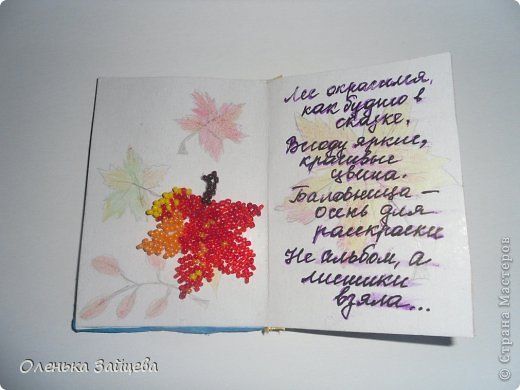 Лес окрасился,
как будто в
сказке,
Всюду яркие,
красивые
цвета.
Баловница –
осень для
раскраски
Не альбом, а
листики
взяла...
Оленька Зайцева
© Страна Мастеров